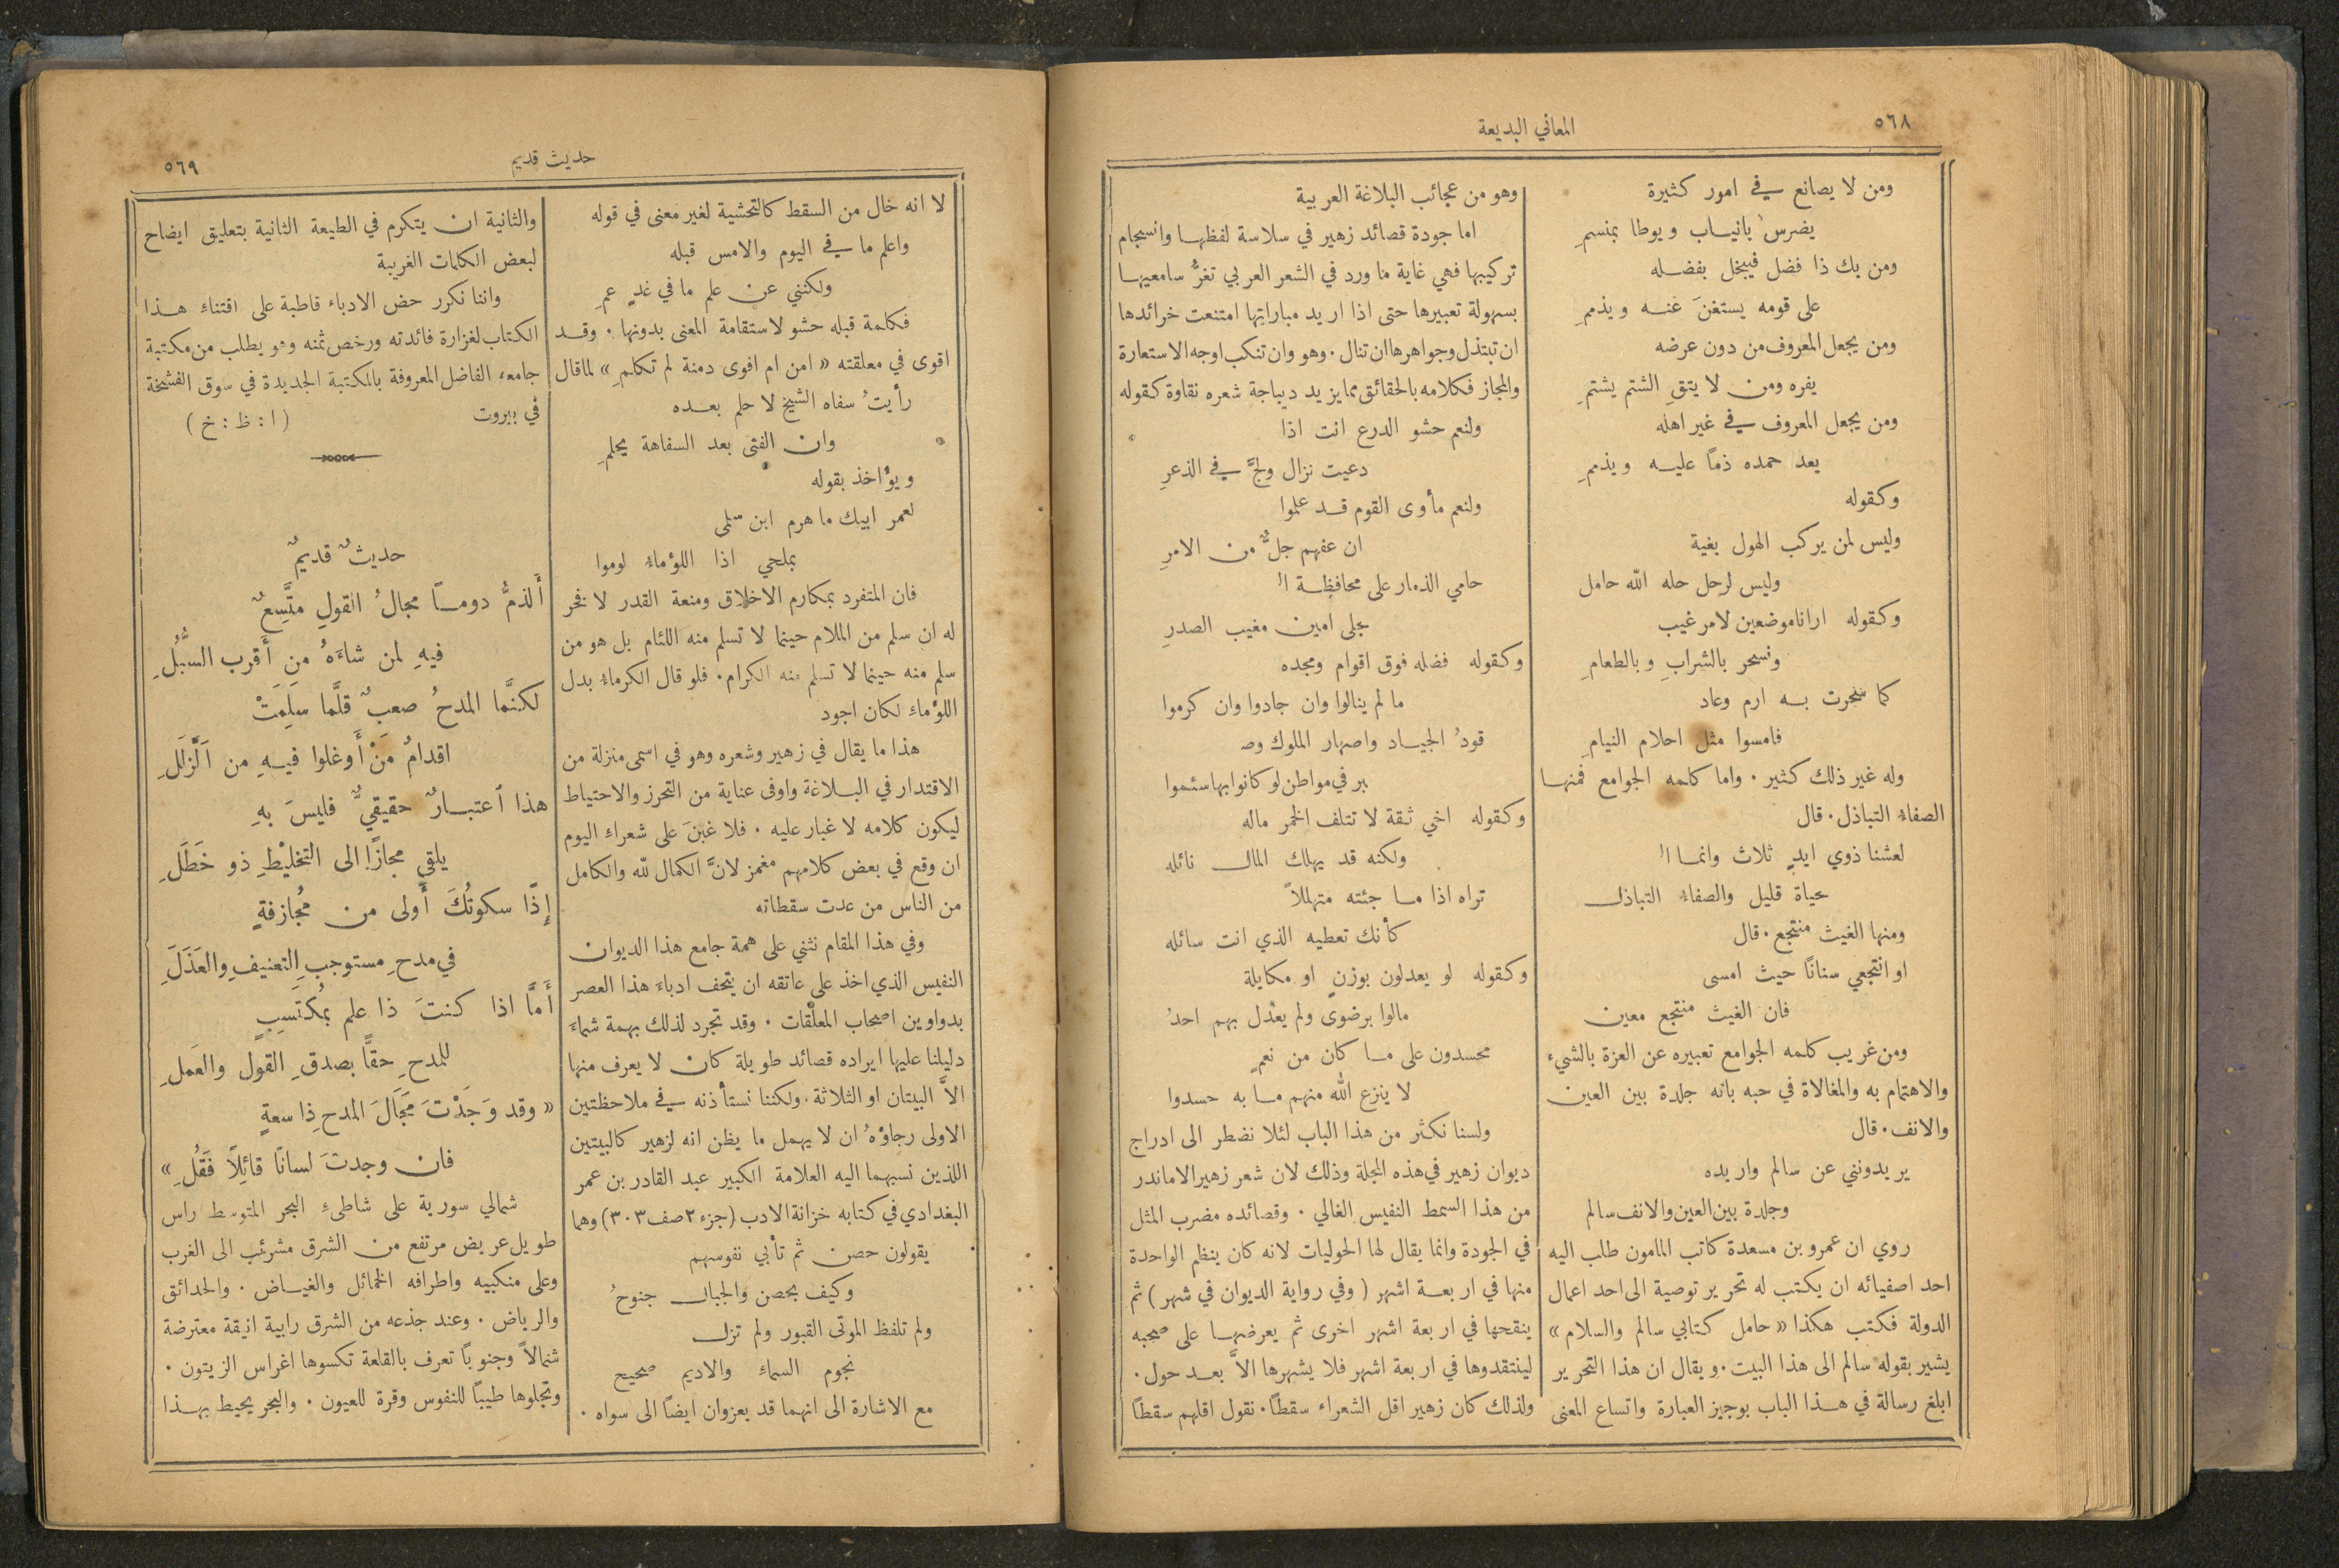 ٥٦٨
المعاني البديعة
ومن لا يصانع في امور كثيرة
يضرس بانياب ويوطا بمنسمِ
ومن يك ذا فضل فيبخل بفضله
على قومه يستغنَ عنه ويذممِ
ومن يجعل المعروف من دون عرضه
يفره ومن لا يتقِ الشتم يشتمِ
ومن يجعل المعروف في غير اهله
يعد حمده ذمًا عليه ويذممِ
وكقوله
وليس لمن يركب الهول بغية
وليس لرحل حله الله حامل
وكقوله ارانا موضعين لامر غيب
ونسحر بالشرابِ وبالطعامِ
كما سحرت به ارم وعاد
فامسوا مثل احلام النيامِ
وله غير ذلك كثير . واما كلمه الجوامع فمنها
الصفاء التباذل . قال
لعشنا ذوي ايدٍ ثلاث وانما ال
حياة قليل والصفاء التباذل
ومنها الغيث منتجع . قال
او انتجعي سنانًا حيث امسى
فان الغيث منتجع معين
ومن غريب كلمه الجوامع تعبيره عن العزة بالشيء
والاهتمام به والمغالاة في حبه بانه جلدة بين العين
والانف . قال
يريدونني عن سالم واريده
وجلدة بين العين والانف سالم
روي ان عمرو بن مسعدة كاتب المامون طلب اليه
احد اصفيائه ان يكتب له تحرير توصية الى احد اعمال
الدولة فكتب هكذا « حامل كتابي سالم والسلام »
يشير بقوله سالم الى هذا البيت . ويقال ان هذا التحرير
ابلغ رسالة في هذا الباب بوجيز العبارة واتساع المعنى
وهو من عجائب البلاغة العربية
اما جودة قصائد زهير في سلاسة لفظها وانسجام
تركيبها فهي غاية ما ورد في الشعر العربي تغرُّ سامعيها
بسهولة تعبيرها حتى اذا اريد مباراتها امتنعت خرائدها
ان تبتذل وجواهرها ان تنال . وهو وان تنكب اوجه الاستعارة
والمجاز فكلامه بالحقائق مما يزيد ديباجة شعره نقاوة كقوله
ولنعم حشو الدرع انت اذا
دعيت نزال ولجَّ في الذعرِ
ولنعم مأوى القوم قد علموا
ان عفهم جلٌّ من الامرِ
حامي الذمار على محافظة ال
جلى امين مغيب الصدرِ
وكقوله فضله فوق اقوام ومجده
ما لم ينالوا وان جادوا وان كرموا
قودُ الجياد واصهار الملوك وص
بر في مواطن لو كانوا بها سئموا
وكقوله اخي ثقة لا تتلف الخمر ماله
ولكنه قد يهلك المال نائله
تراه اذا ما جئته متهللاً
كأنك تعطيه الذي انت سائله
وكقوله لو يعدلون بوزنٍ او مكايلة
مالوا برضوى ولم يعدل بهم احدُ
محسدون على ما كان من نعمٍ
لا ينزع الله منهم ما به حسدوا
ولسنا نكثر من هذا الباب لئلا نضطر الى ادراج
ديوان زهير في هذه المجلة وذلك لان شعر زهير الا ما ندر
من هذا السمط النفيس الغالي . وقصائده مضرب المثل
في الجودة وانما يقال لها الحوليات لانه كان ينظم الواحدة
منها في اربعة اشهر ( وفي رواية الديوان في شهر ) ثم
ينقحها في اربعة اشهر اخرى ثم يعرضها على صحبه
لينتقدوها في اربعة اشهر فلا يشهرها الاَّ بعد حول .
ولذلك كان زهير اقل الشعراء سقطًا . نقول اقلهم سقطًا
حديث قديم
٥٦٩
لا انه خال من السقط كالتحشية لغير معنى في قوله
واعلم ما في اليوم والامس قبله
ولكنني عن علم ما في غدٍ عمِ
فكلمة قبله حشو لاستقامة المعنى بدونها . وقد
اقوى في معلقته « امن ام اوفى دمنة لم تكلمِ » لما قال
رأيتُ سفاه الشيخ لا حلم بعده
وان الفتى بعد السفاهة يحلمِ
ويؤاخذ بقوله
لعمر ابيك ما هرم ابن سلمى
بملحي اذا اللؤماء لوموا
فان المتفرد بمكارم الاخلاق ومنعة القدر لا فخر
له ان سلم من الملام حينما لا تسلم منه اللئام بل هو من
سلم منه حينما لا تسلم منه الكرام . فلو قال الكرماء بدل
اللؤماء لكان اجود
هذا ما يقال في زهير وشعره وهو في اسمى منزلة من
الاقتدار في البلاغة واوفى عناية من التحرز والاحتياط
ليكون كلامه لا غبار عليه . فلا غبنَ على شعراء اليوم
ان وقع في بعض كلامهم مغمز لانَّ الكمال لله والكامل
من الناس من عدت سقطاته
وفي هذا المقام نثني على همة جامع هذا الديوان
النفيس الذي اخذ على عاتقه ان يتحف ادباءَ هذا العصر
بدواوين اصحاب المعلَّقات . وقد تجرد لذلك بهمة شماءَ
دليلنا عليها ايراده قصائد طويلة كان لا يعرف منها
الاَّ البيتان او الثلاثة . ولكننا نستأذنه في ملاحظتين
الاولى رجاؤهُ ان لا يهمل ما يظن انه لزهير كالبيتين
اللذين نسبهما اليه العلامة الكبير عبد القادر بن عمر
البغدادي في كتابه خزانة الادب ( جزء ٢ صف ٣٠٣ ) وهما
يقولون حصن ثم تأبي نفوسهم
وكيف بحصن والجبال جنوحُ
ولم تلفظ الموتى القبور ولم تزل
نجوم السماء والاديم صحيح
مع الاشارة الى انهما قد يعزوان ايضًا الى سواه .
والثانية ان يتكرم في الطبعة الثانية بتعليق ايضاح
لبعض الكلمات الغريبة
واننا نكرر حض الادباء قاطبة على اقتناء هذا
الكتاب لغزارة فائدته ورخص ثمنه وهو يطلب من مكتبة
جامعه الفاضل المعروفة بالمكتبة الجديدة في سوق الفشخة
في بيروت ( ا : ظ : خ )
حديثٌ قديمٌ
أَلذمُّ دومًا مجالُ القولِ متَّسِعٌ
فيهِ لمن شاءَهُ من أَقرب السُّبُلِ
لكنَّما المدحُ صعبٌ قلَّما سَلِمَتْ
اقدامُ مَنْ أَوغلوا فيهِ من الزَّلَلِ
هذا اعتبارٌ حقيقيٌّ فليسَ بهِ
يلقي مجازًا الى التخليْطِ ذو خَطَلِ
إِذًا سكوتُكَ أَولى من مُجازفةٍ
في مدحِ مستوجبِ التعنيفِ والعَذَلَ
أَمَّا اذا كنتَ ذا علم بمُكتَسِبٍ
للمدحِ حقًّا بصدقِ القول والعَملِ
« وقد وَجَدْتَ مَجَالَ المدحِ ذا سعةٍ
فان وجدتَ لسانًا قائِلاً فَقُلِ »
شمالي سورية على شاطىء البحر المتوسط راس
طويل عريض مرتفع من الشرق مشرئب الى الغرب
وعلى منكبيه واطرافه الخمائل والغياض . والحدائق
والرياض . وعند جذعه من الشرق رابية انيقة معترضة
شمالاً وجنوبًا تعرف بالقلعة تكسوها اغراس الزيتون .
وتجلوها طيبًا للنفوس وقرة للعيون . والبحر يحيط بهذا